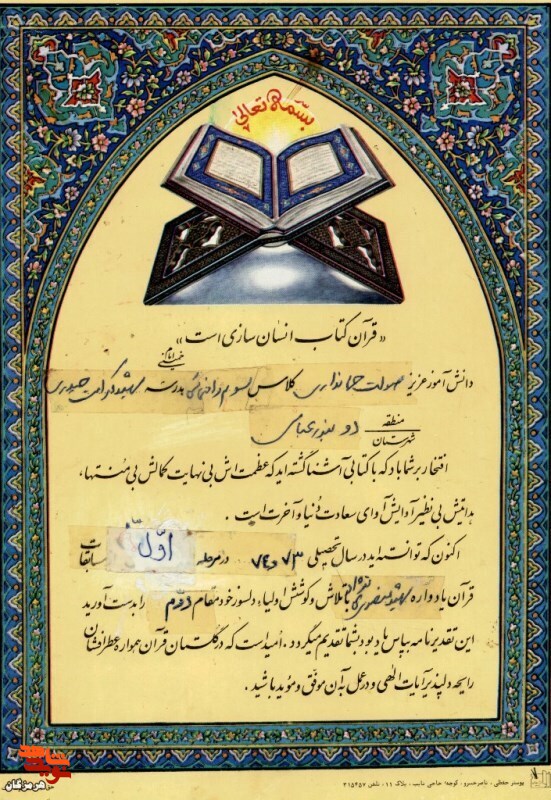 بسمه تعالی
«قرآن کتاب انسان سازی است»
دانش آموز عزیز صولت جهانداری کلاس سوم راهنمایی مدرسه شهید کرامت حیدری
منطقه
شهرستان
دو بندرعباس
افتخار بر شما باد که با کتابی آشنا گشته اید که عظمت اش بی نهایت کمالش بی مُنتها،
هدایتش بی نظیر آوایش آوای سعادت دُنیا و آخرت است.
اکنون که توانسته اید در سال تحصیلی ۷۳ و ۷۴ در مرحله اوّل مسابقات
قرآن یادواره شهید منصوری با تلاش و کوشش اولیاء دلسوز خود مقام دوّم را بدست آورید
این تقدیرنامه بپاس یادبود بشما تقدیم میگردد، اُمید است که در گلستان قرآن همواره عطر افشان
رایحه دلپذیر آیات الهی و در عمل به آن موفق و مؤید باشید.
هرمزگان
پوستر حقی، ناصرخسرو، کوچه حاجی نایب، پلاک ۱۱، تلفن ۳۱۵۴۵۷